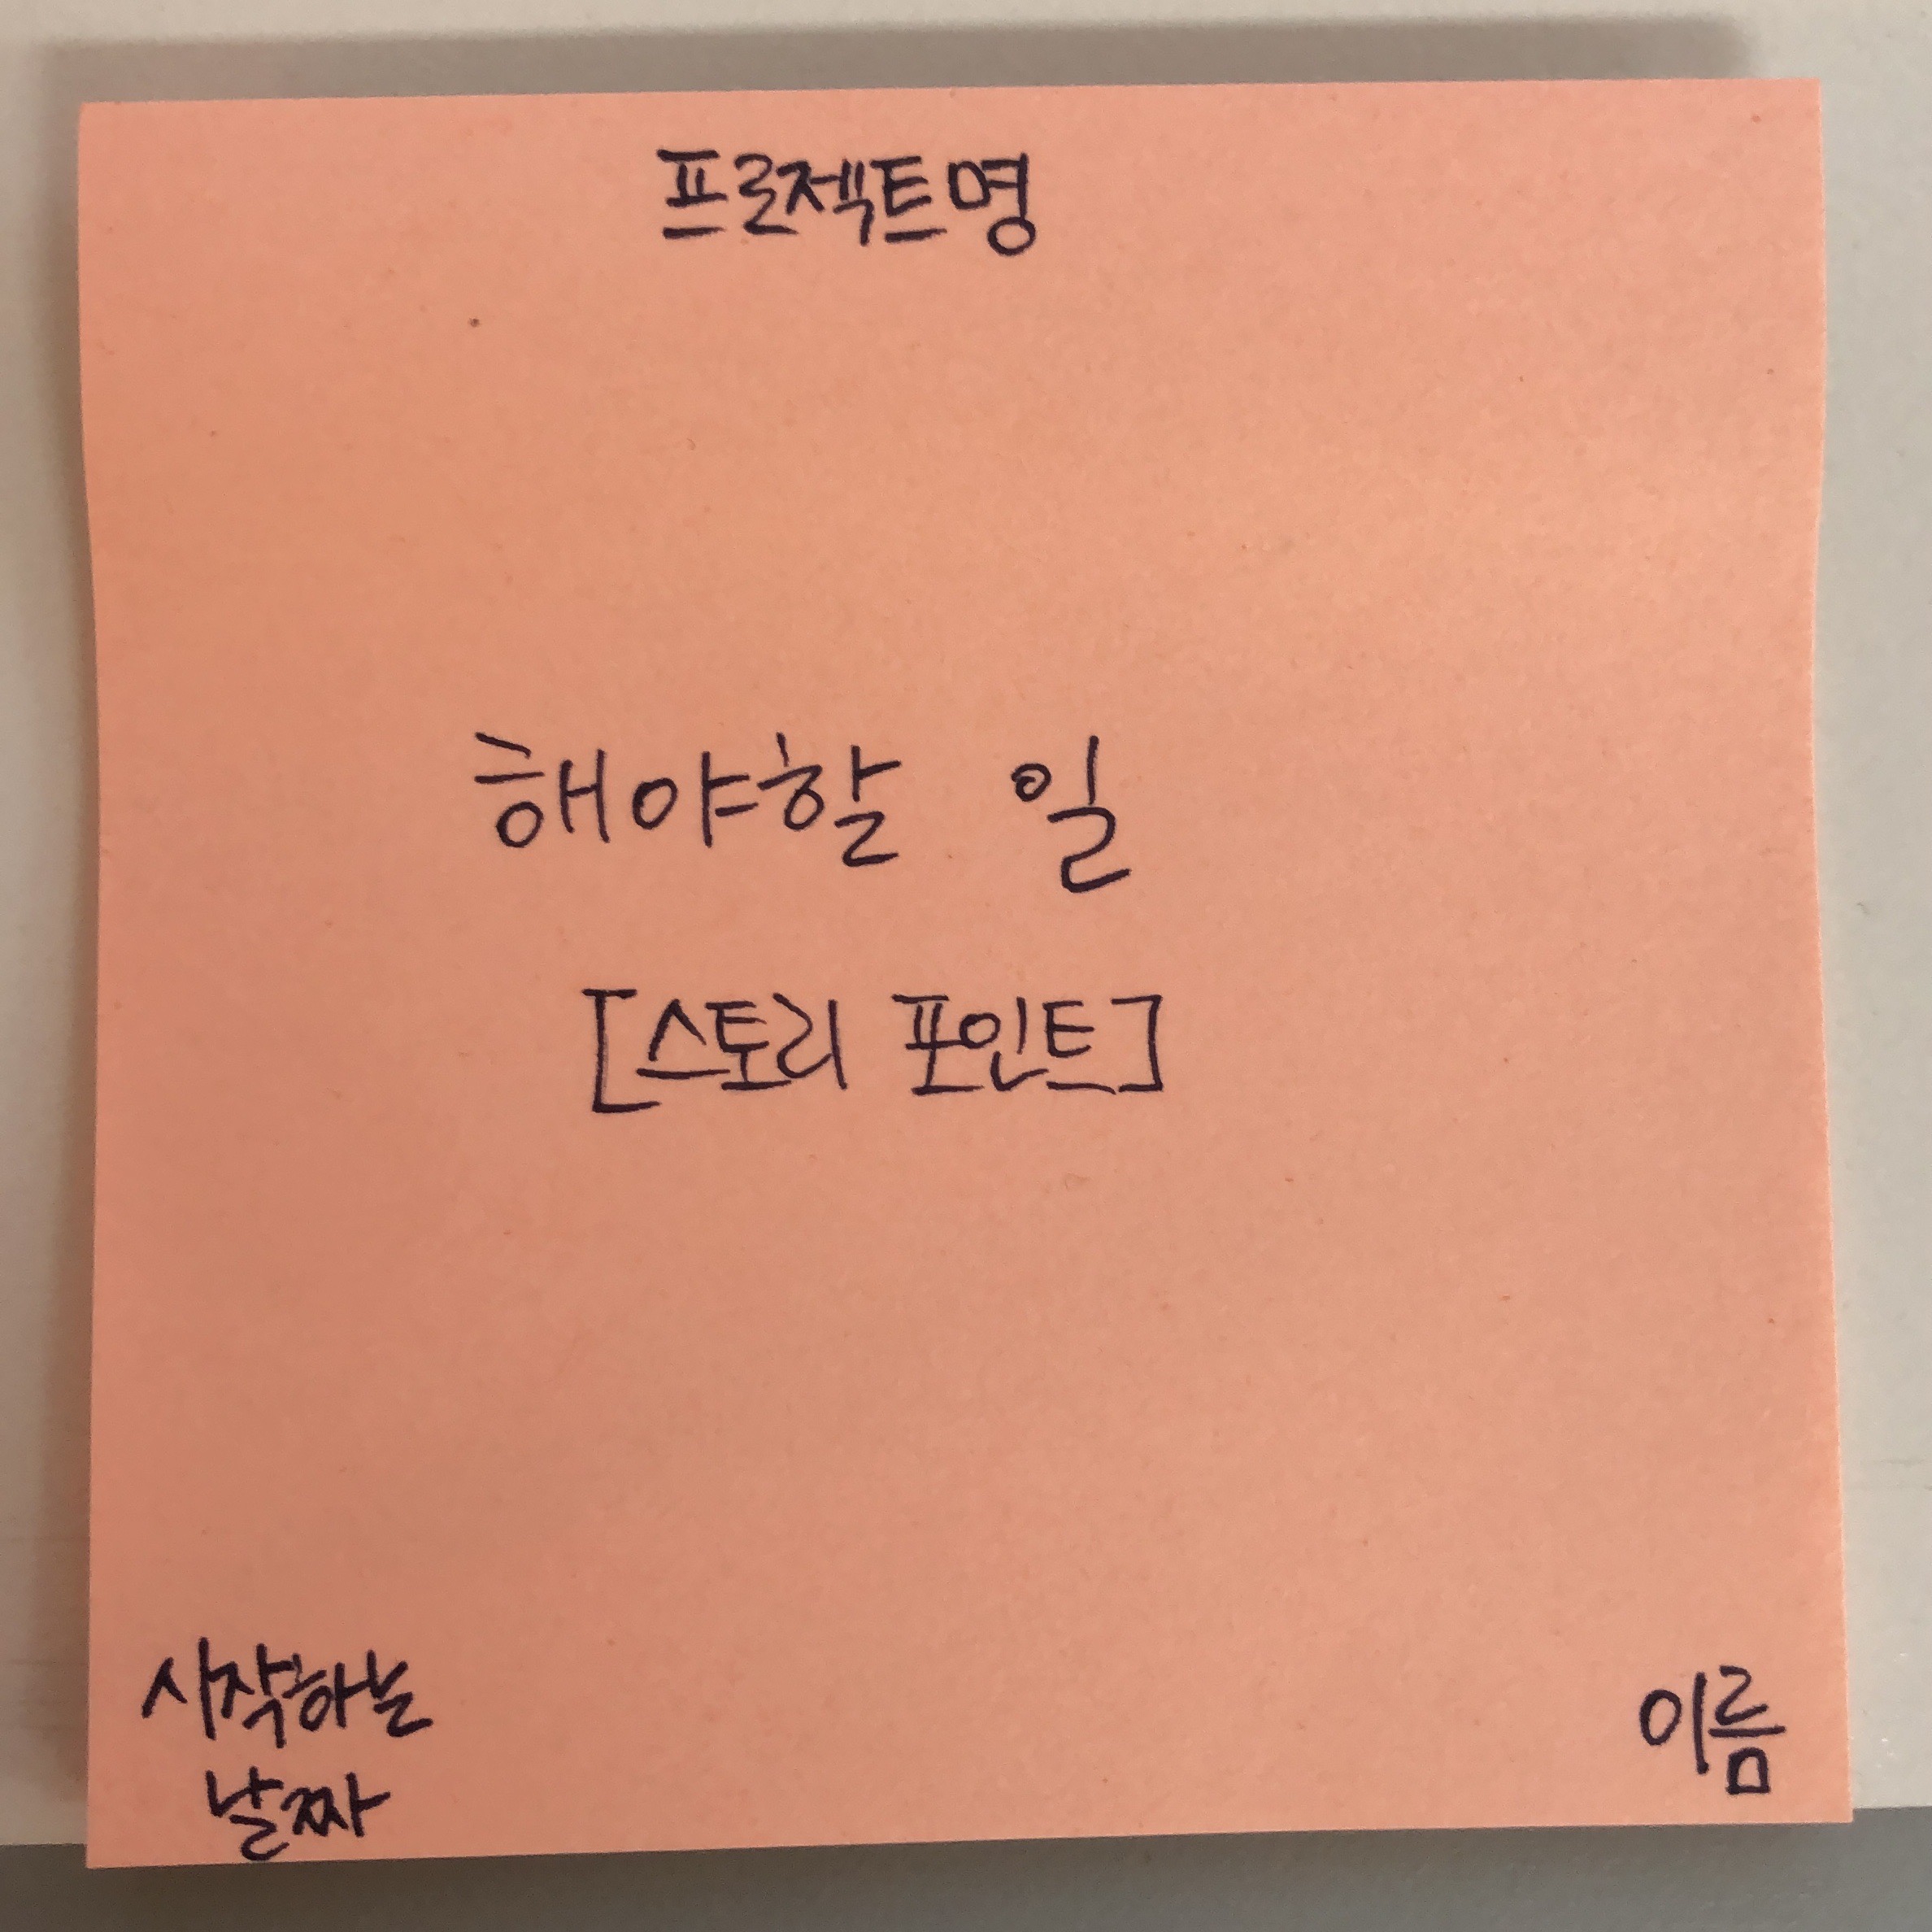 프로젝트명
해야할 일
[스토리 포인트]
시작하는
날짜
이름